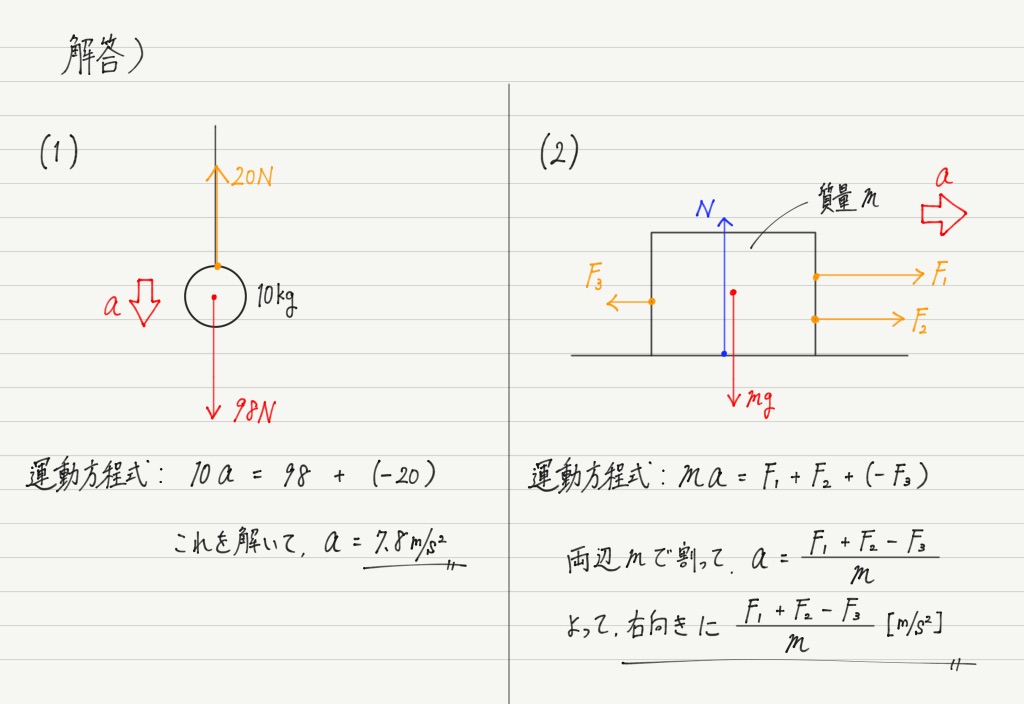 解答)
(1)
20N
a
10kg
98N
運動方程式: 10a = 98 + (-20)
これを解いて, a = 7.8m/s²
(2)
質量m
a
N
F₃
F₁
F₂
mg
運動方程式: ma = F₁ + F₂ + (-F₃)
両辺mで割って, a = (F₁ + F₂ - F₃)/m
よって, 右向きに (F₁ + F₂ - F₃)/m [m/s²]